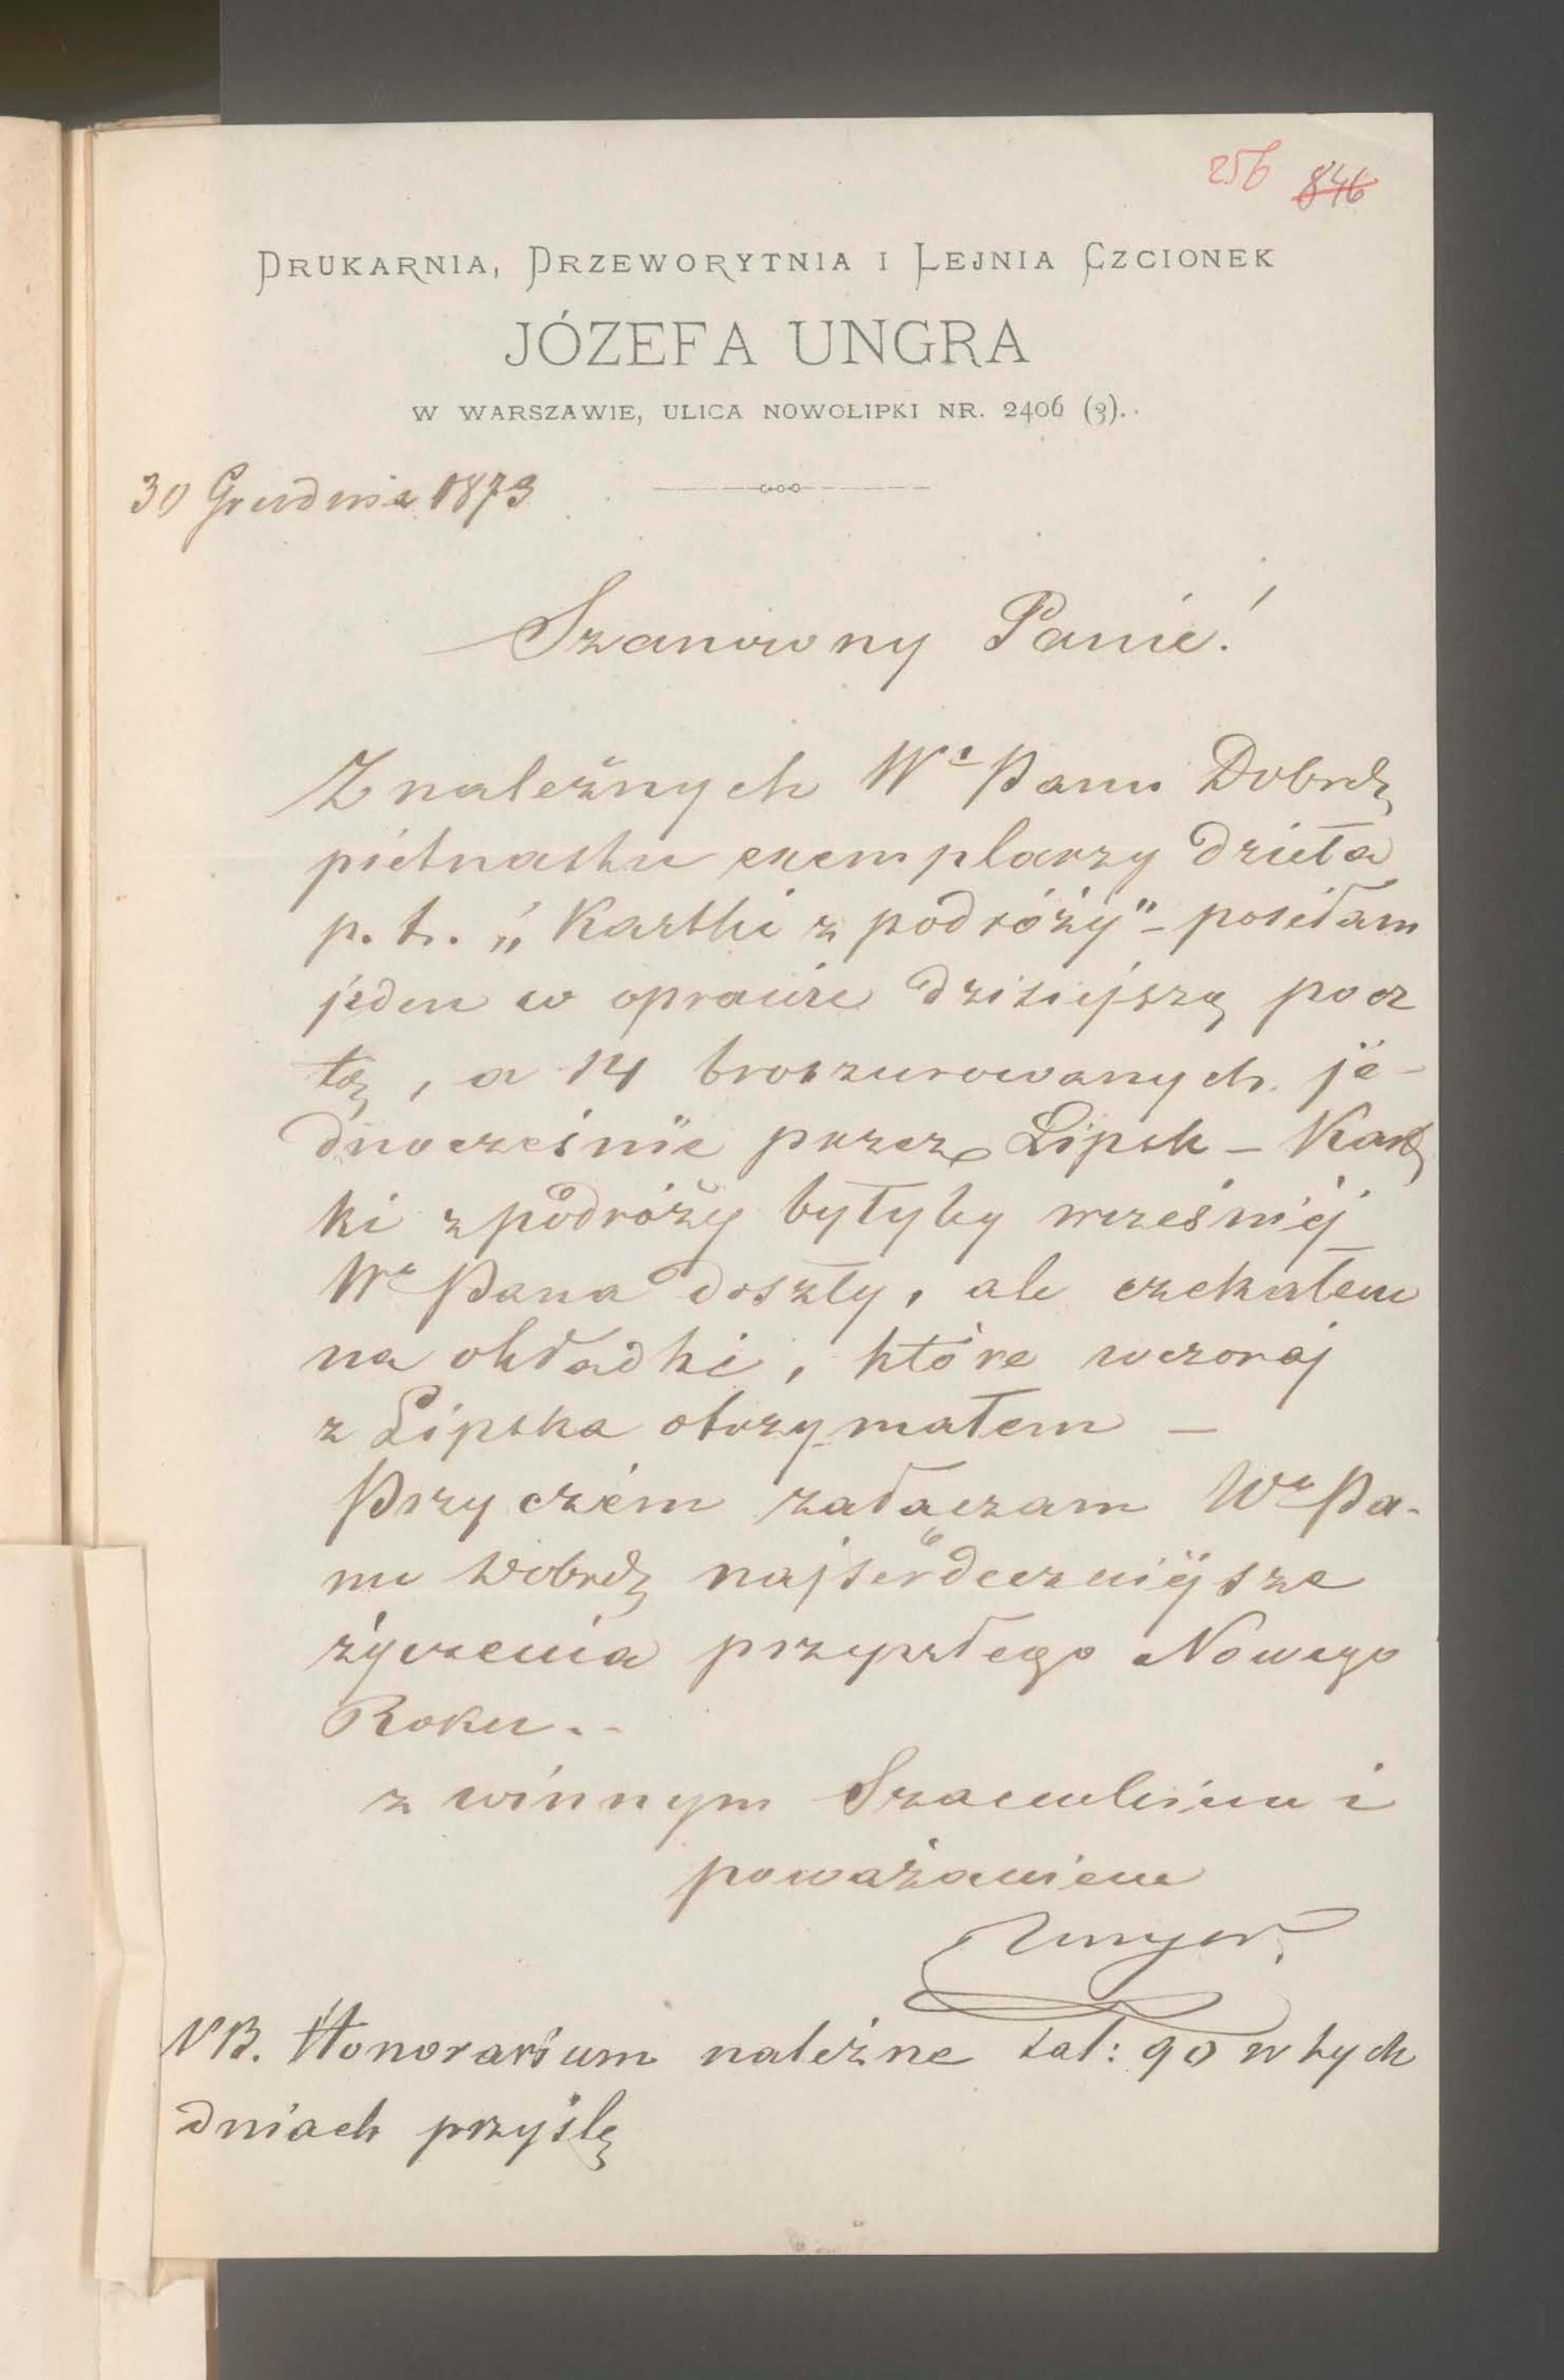 256 846
DRUKARNIA, DRZEWORYTNIA I LEJNIA CZCIONEK
JÓZEFA UNGRA
W WARSZAWIE, ULICA NOWOLIPKI NR. 2406 (3).
30 Grudnia 1873
Szanowny Panie!
Z należnych Wo Panu Dobrdz
pietnastu exemplarzy dzieła
p. t. „Kartki z podróży" – posełam
jeden w oprawie dzisiejszą pocz
tą, a 14 broszurowanych je-
dnocześnie przez Lipsk – Kart
ki z podróży byłyby wcześniéj
Wo Pana doszły, ale czekałem
na okładki, które wczoraj
z Lipska otrzymałem –
Przy czém załaczam Wo Pa-
nu Dobrdz najserdeczniéjsze
życzenia przyszłego Nowego
Roku..
z winnym Szacunkiem i
poważaniem
Unger
NB. Honorarium należne tal: 90 w tych
dniach przyślę